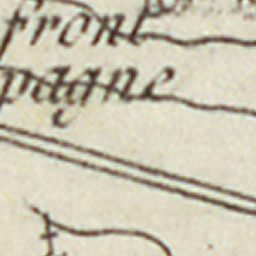 front
pagne